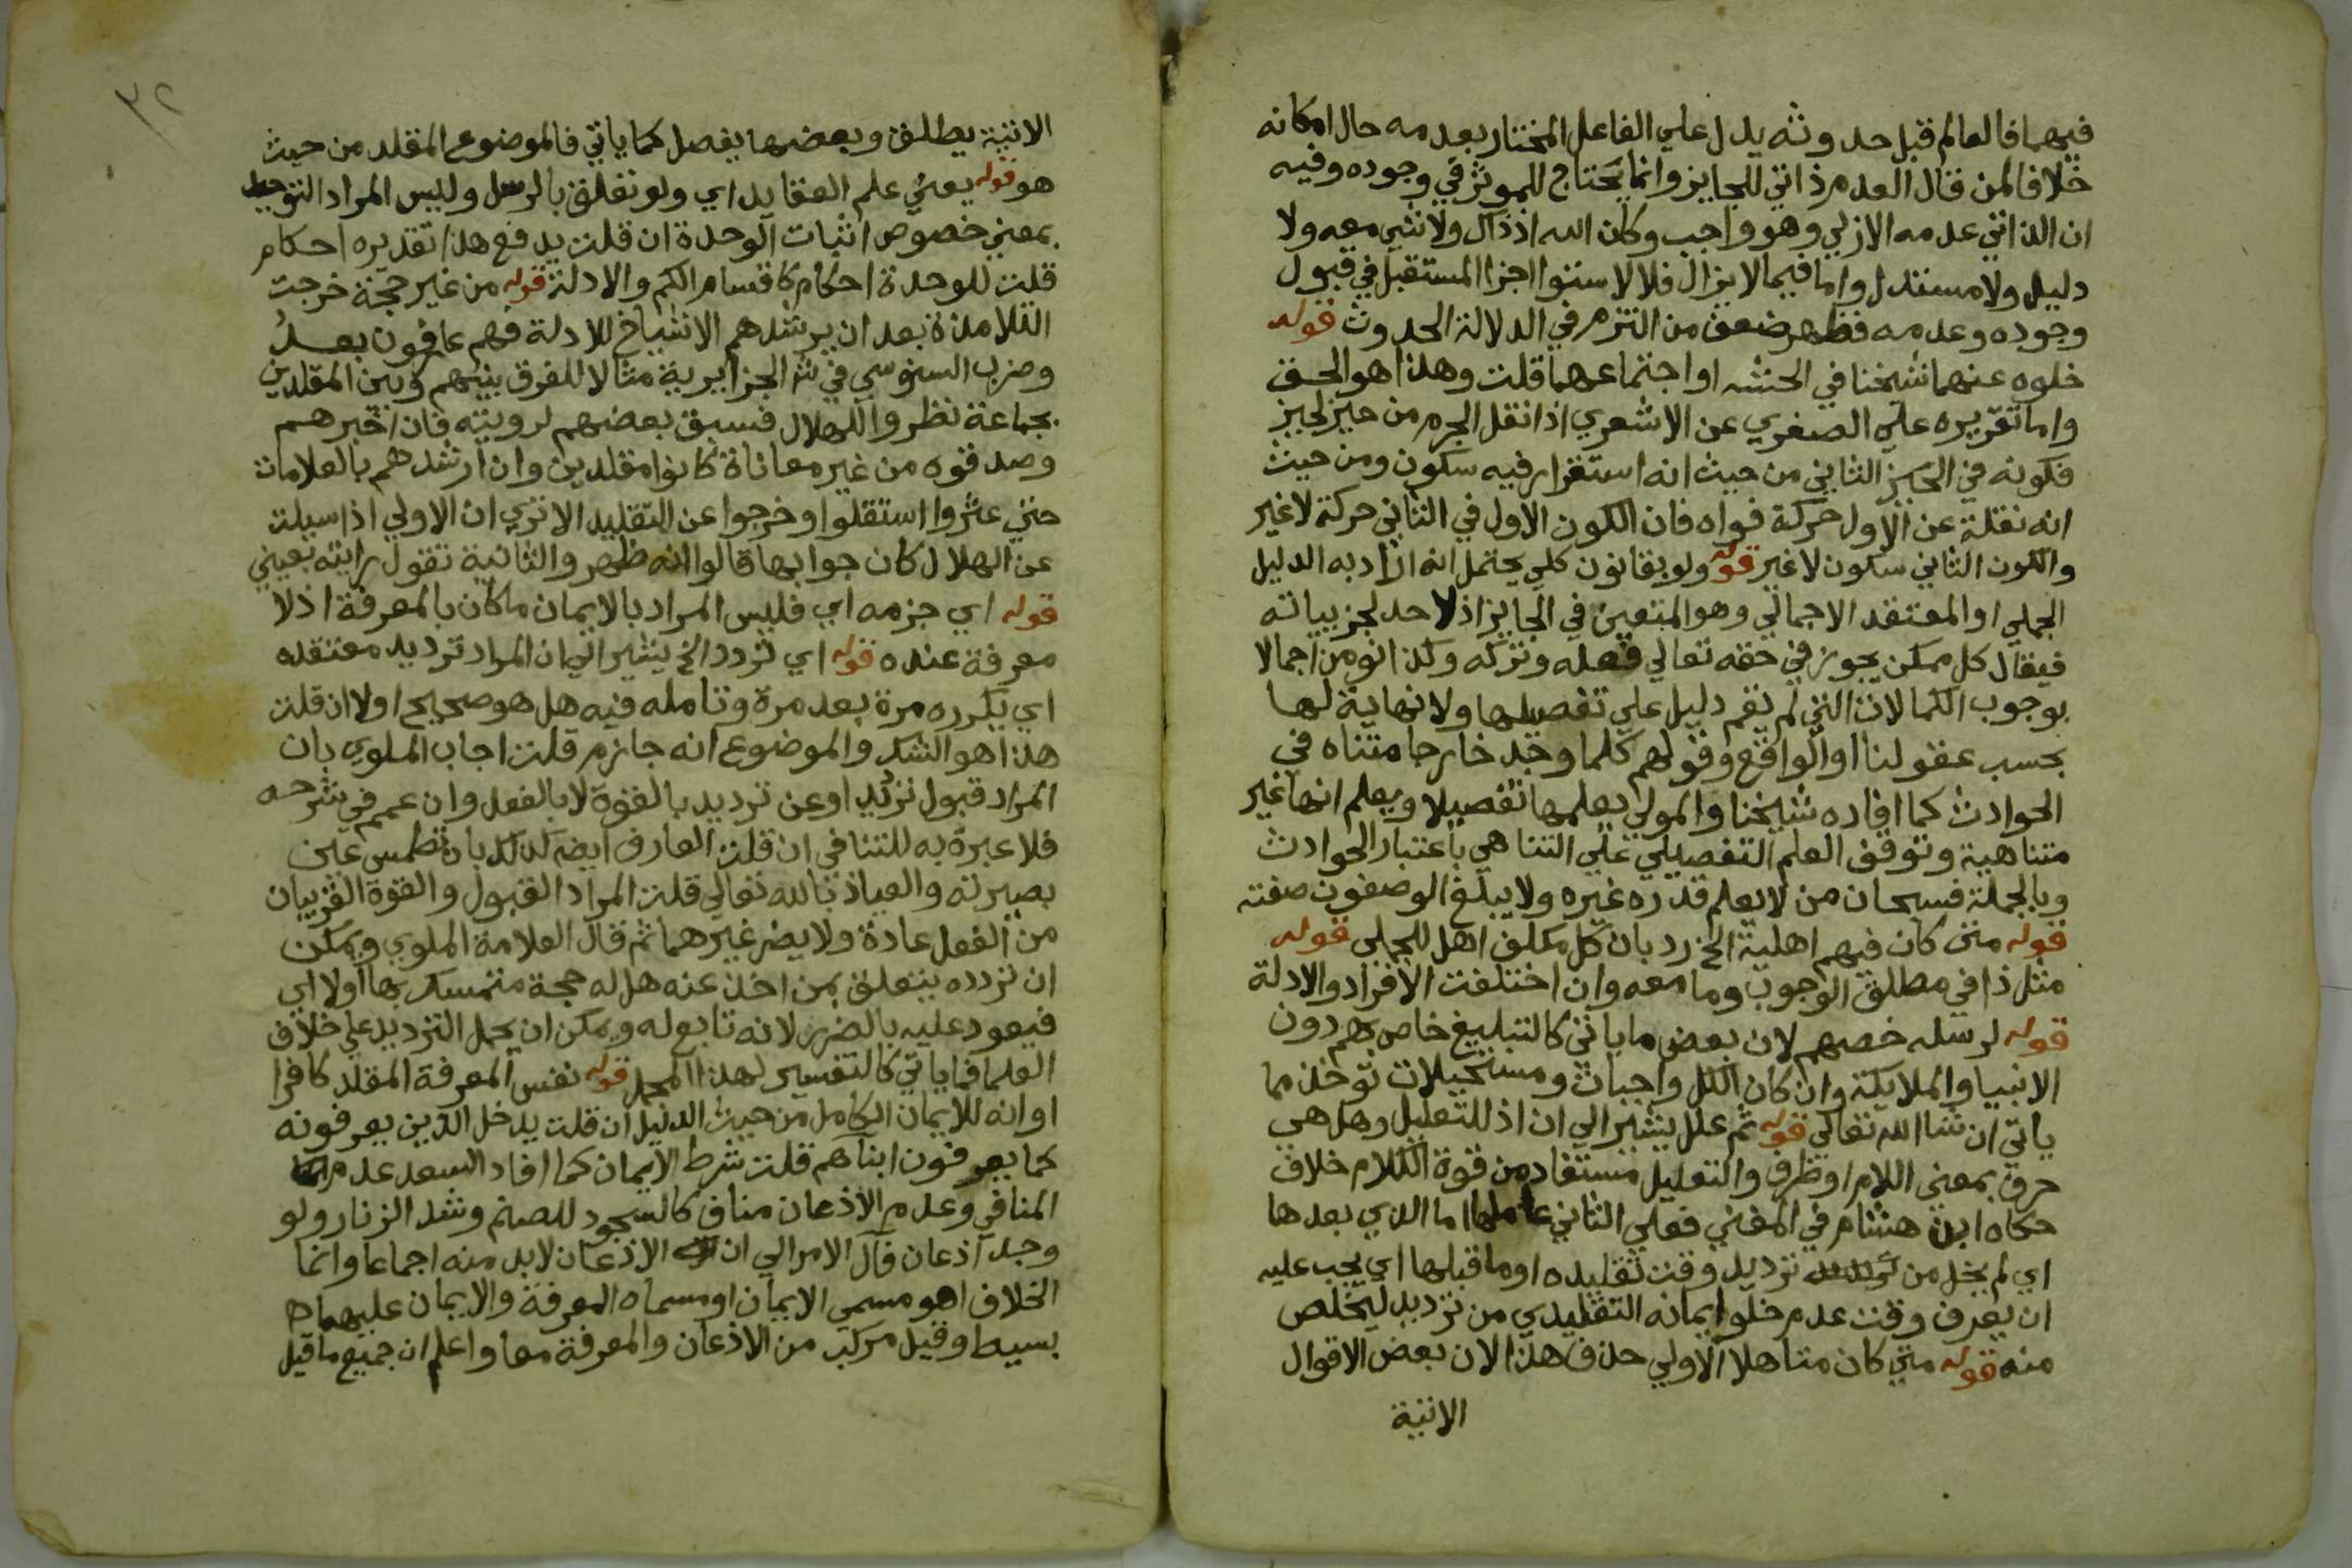 فيهما فالعالم قبل حدوثه يدل علي الفاعل المختار بعدمه حال امكانه
خلافا لمن قال العدم ذاتي للجايز وانما يحتاج للموثر في وجوده وفيه
ان الذاتي عدمه الازلي وهو واجب وكان الله اذ ذاك ولا شي معه ولا
دليل ولا مستدل واما فيما لا يزال فلا لاستوا اجزا المستقبل في قبول
وجوده وعدمه فظهر ضعف من التزم في الدلالة الحدوث قوله
خلوه عنهما شيخنا في الحشه او اجتماعهما قلت وهذا هو الحق
واما تقريره علي الصغري عن الاشعري اذا نقل الجرم من حيز لحيز
فكونه في الحيز الثاني من حيث انه استقرار فيه سكون ومن حيث
انه نقلة عن الاول حركة فواه فان الكون الاول في الثاني حركة لا غير
والكون الثاني سكون لا غير قوله ولو بقانون كلي يحتمل انه اراد به الدليل
الجملي او المعتقد الاجمالي وهو المتعين في الجايز اذ لا حد لجزيياته
فيقال كل ممكن يجوز في حقه تعالي فعله وتركه وكذا نومن اجمالا
بوجوب الكمالات التي لم يقم دليل علي تفصيلها ولا نهاية لها
بحسب عقولنا او الواقع وقولهم كلما وجد خارجا متناه في
الحوادث كما افاده شيخنا والمولي يعلمها تفصيلا ويعلم انها غير
متناهية وتوقف العلم التفصيلي علي التناهي باعتبار الحوادث
وبالجملة فسبحان من لا يعلم قدره غيره ولا يبلغ الوصفون صفته
قوله متي كان فيهم اهلية الخ رد بان كل مكلف اهل للجملي قوله
مثل ذا في مطلق الوجوب وما معه وان اختلفت الافراد والادلة
قوله لرسله خصهم لان بعض ما ياتي كالتبليغ خاص بهم دون
الانبيا والملايكة وان كان الكل واجبات ومستحيلات توخذ مما
ياتي ان شا الله تعالي قوله ثم علل يشير الي ان اذ للتعليل وهل هي
حرف بمعني اللام او ظرف والتعليل مستفاد من قوة الكلام خلاف
حكاه ابن هشام في المغني فعلي الثاني عاملها اما الذي بعدها
اي لم يخل من ترديد وقت تقليده او ما قبلها اي يجب عليه
ان يعرف وقت عدم خلو ايمانه التقليدي من ترديد ليخلص
منه قوله متي كان متاهلا الاولي حذف هذا لان بعض الاقوال
الاتية
٣٢
الاتية يطلق وبعضها يفصل كما ياتي فالموضوع المقلد من حيث
هو قوله يعني علم العقايد اي ولو تعلق بالرسل وليس المراد التوحيد
بمعني خصوص اثبات الوحدة ان قلت يدفع هذا تقديره احكام
قلت للوحدة احكام كاقسام الكم والادلة قوله من غير حجة خرجت
التلامذة بعد ان يرشدهم الاشياخ للادلة فهم عارفون بعد
وضرب السنوسي في شر الجزايرية مثالا للفرق بينهم وبين المقلدين
بجماعة نظروا للهلال فسبق بعضهم لرويته فان اخبرهم
وصدقوه من غير معاناة كانوا مقلدين وان ارشدهم بالعلامات
حتي عثروا استقلوا وخرجوا عن التقليد الا تري ان الاولي اذا سيلت
عن الهلال كان جوابها قالوا انه ظهر والثانية تقول رايته بعيني
قوله اي جزمه اي فليس المراد بالايمان ما كان بالمعرفة اذ لا
معرفة عنده قوله اي تردد الخ يشير الي ان المراد ترديد معتقده
اي يكرره مرة بعد مرة وتامله فيه هل هو صحيح اولا ان قلت
هذا هو الشك والموضوع انه جازم قلت اجاب الملوي بان
المراد قبول ترديد او عن ترديد بالقوة لا بالفعل وان عمم في شرحه
فلا عبرة به للتنافي ان قلت العارف ايضا كذلك بان تطمس عين
بصيرته والعياذ بالله تعالي قلت المراد القبول والقوة القريبان
من الفعل عادة ولا يضر غيرهما ثم قال العلامة الملوي ويمكن
ان تردده يتعلق بمن اخذ عنه هل له حجة متمسك بها اولا اي
فيعود عليه بالضرر لانه تابع له ويمكن ان يحمل الترديد علي خلاف
العلما فما ياتي كالتفسير لهذا المجمل قوله نفس المعرفة المقلد كافرا
او انه للايمان الكامل من حيث الدليل ان قلت يدخل الذين يعرفونه
كما يعرفون ابناهم قلت شرط الايمان كما افاد السعد عدم
المنافي وعدم الاذعان مناف كالسجود للصنم وشد الزنار ولو
وجد اذعان فآل الامر الي ان الاذعان لابد منه اجماعا وانما
الخلاف اهو مسمي الايمان او مسماه المعرفة والايمان عليهما
بسيط وقيل مركب من الاذعان والمعرفة معا واعلم ان جميع ما قيل